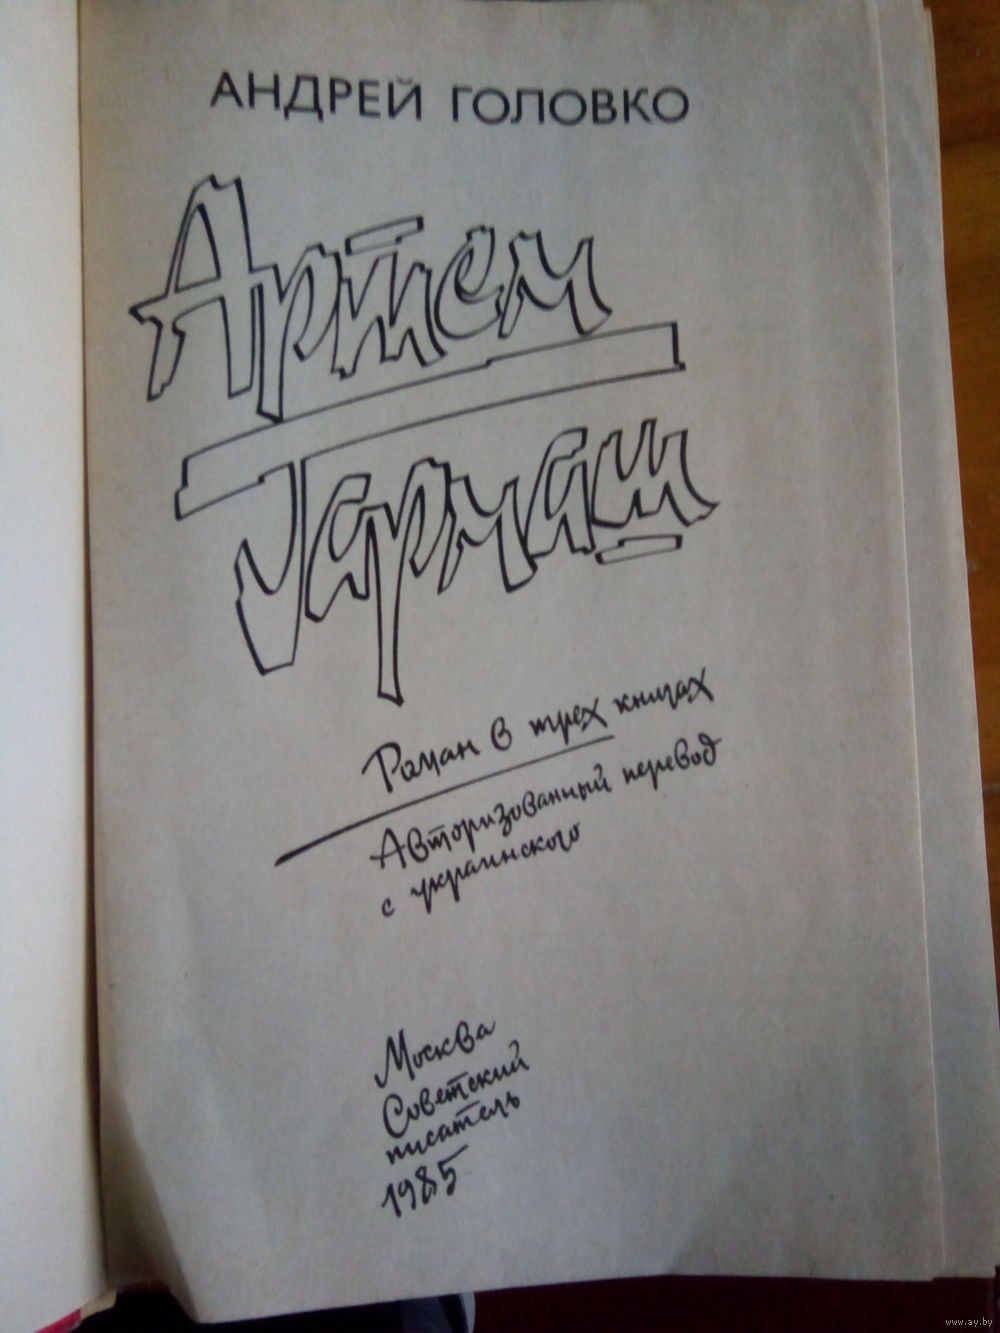 АНДРЕЙ ГОЛОВКО
Артем
Гармаш
Роман в трех книгах
Авторизованный перевод
с украинского
Москва
Советский
писатель
1985
www.ay.by